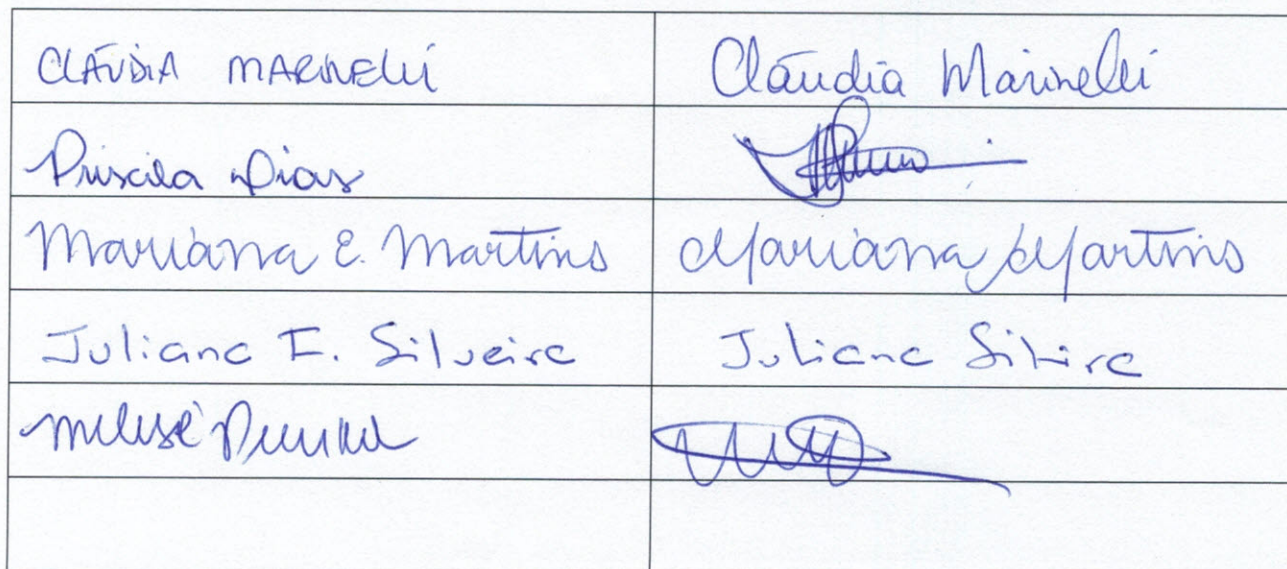 CLÁUDIA MARINELLI Cláudia Marinelli
Priscila Dias
Mariana E. Martins Mariana Martins
Juliana F. Silveira Juliana Silveira